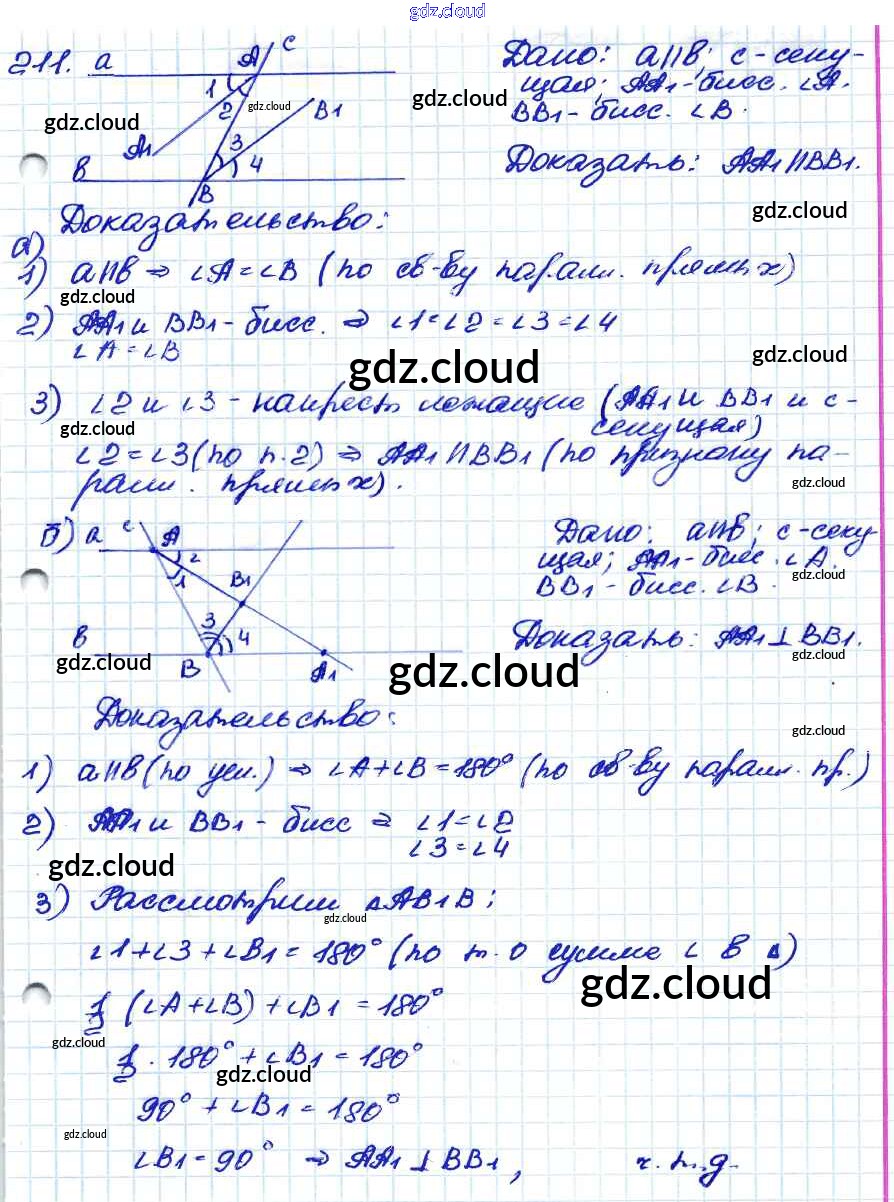 gdz.cloud
211. a A c
1 2 gdz.cloud B1
gdz.cloud
A1 3 4
в B
Дано: a∥в; c - секу-
gdz.cloud
щая; AA1 - бисс. ∠A.
BB1 - бисс. ∠B.
Доказать: AA1∥BB1.
gdz.cloud
Доказательство:
а)
1) a∥в ⇒ ∠A = ∠B (по св-ву паралл. прямых)
gdz.cloud
2) AA1 и BB1 - бисс. ⇒ ∠1=∠2=∠3=∠4
∠A = ∠B
gdz.cloud
gdz.cloud
3) ∠2 и ∠3 - накрест лежащие (AA1 и BB1 и c -
gdz.cloud
секущая)
∠2 = ∠3 (по п.2) ⇒ AA1∥BB1 (по признаку па-
ралл. прямых).
gdz.cloud
б) a c A 2
1 B1
3 4
в
gdz.cloud
B A1
Дано: a∥в; c - секу-
щая; AA1 - бисс. ∠A.
gdz.cloud
BB1 - бисс. ∠B.
Доказать: AA1⊥BB1.
gdz.cloud
gdz.cloud
Доказательство:
gdz.cloud
1) a∥в (по усл.) ⇒ ∠A+∠B = 180° (по св-ву паралл. пр.)
2) AA1 и BB1 - бисс ⇒ ∠1=∠2
∠3=∠4
gdz.cloud
3) Рассмотрим △AB1B:
gdz.cloud
∠1+∠3+∠B1 = 180° (по т. о сумме ∠ в △)
gdz.cloud
1/2 (∠A+∠B) + ∠B1 = 180°
gdz.cloud
1/2 · 180° + ∠B1 = 180°
gdz.cloud
90° + ∠B1 = 180°
gdz.cloud
∠B1 = 90° ⇒ AA1 ⊥ BB1, ч.т.д.